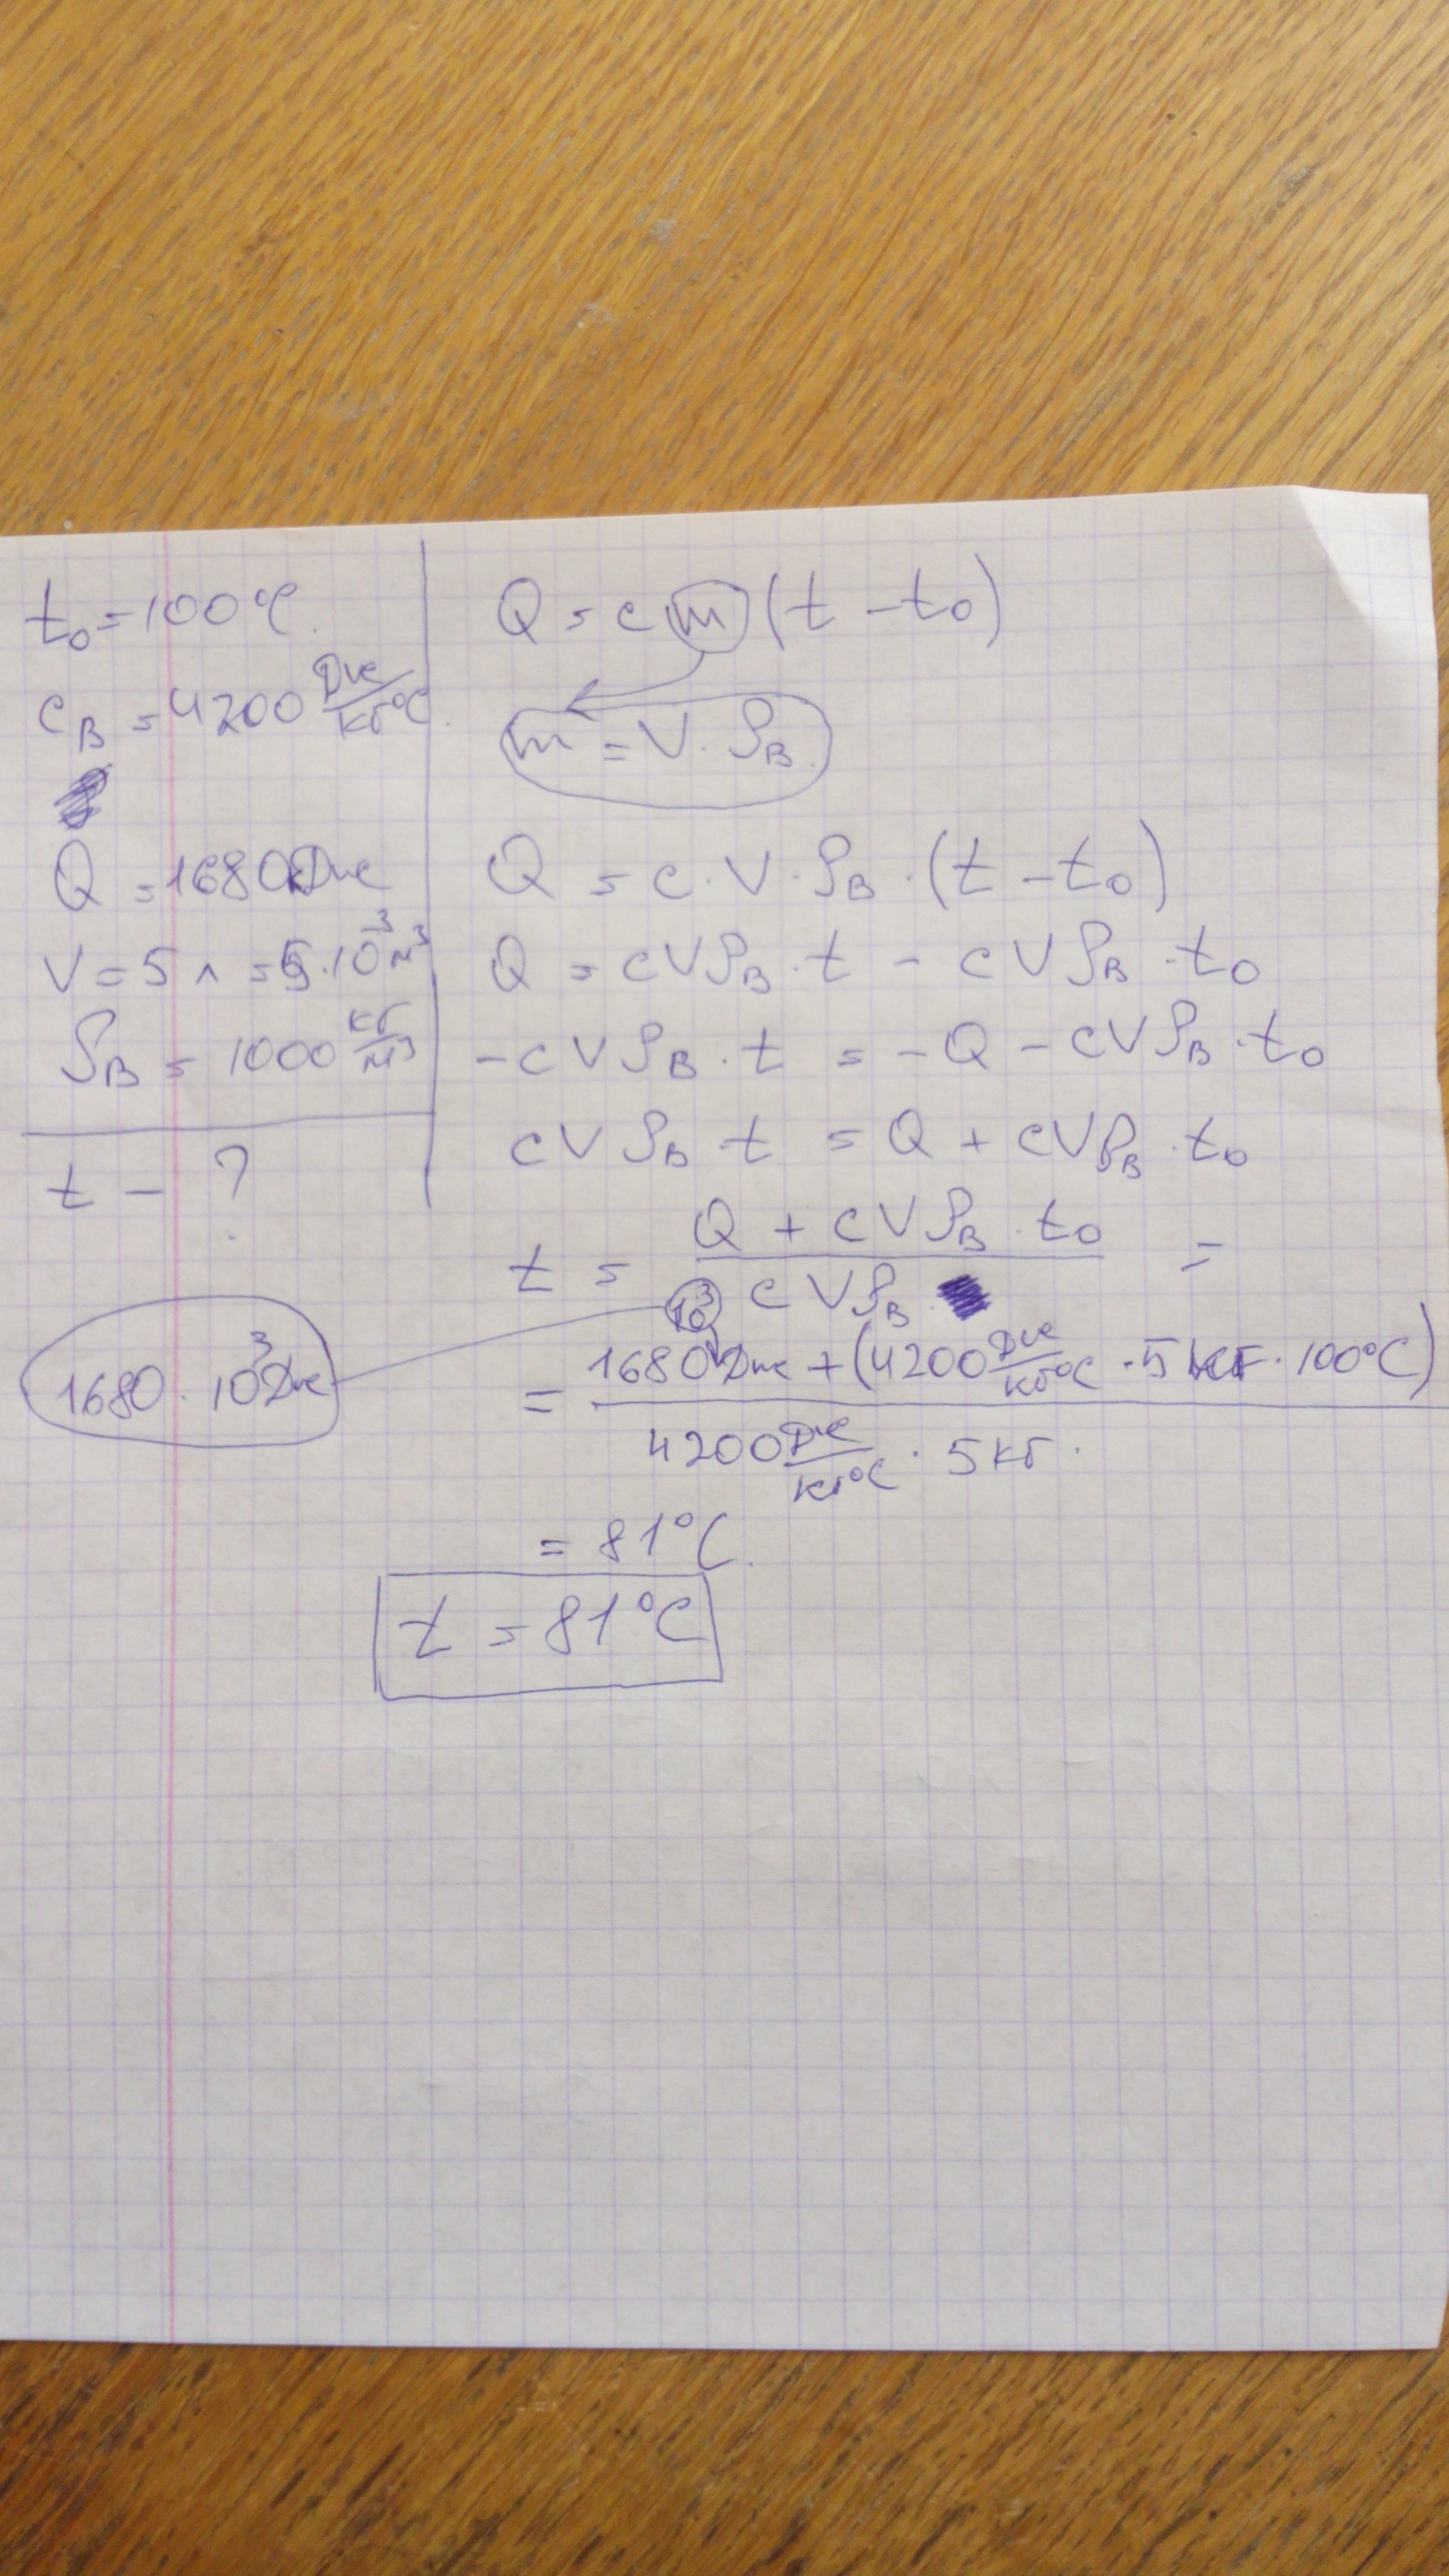 t₀ = 100°C.
c_В = 4200 Дж/кг°C.
Q = 1680кДж
V = 5 л = 5·10⁻³ м³
ρ_В = 1000 кг/м³
t – ?
1680 · 10³ Дж
Q = cm(t – t₀)
m = V · ρ_В
Q = c · V · ρ_В · (t – t₀)
Q = cVρ_В · t – cVρ_В · t₀
–cVρ_В · t = –Q – cVρ_В · t₀
cVρ_В · t = Q + cVρ_В · t₀
t = (Q + cVρ_В · t₀) / (cVρ_В) =
10³
= (1680 Дж + (4200 Дж/кг°C · 5 кг · 100°C)) / (4200 Дж/кг°C · 5 кг ·
= 81°C.
t = 81°C